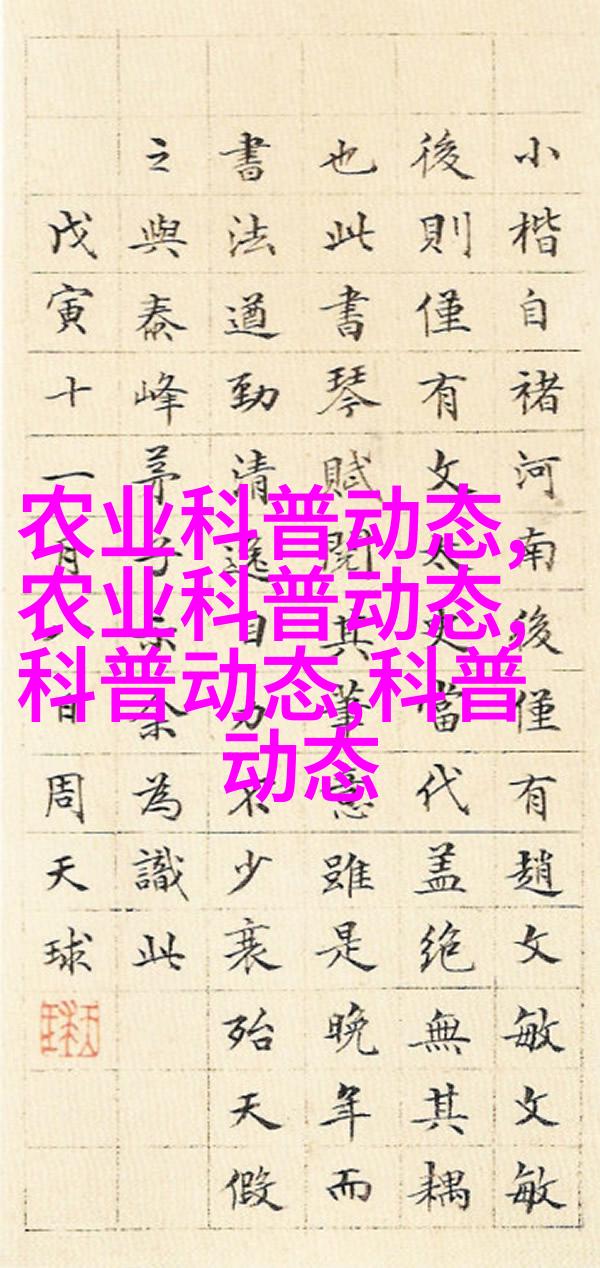 小楷自褚河南後僅有趙文敏文敏
後則僅有文太史當代盖絶無其耦
也此書琴賦閱其筆意雖是晚年而
書法遒勁清逸目力不少衰殆天假
之與泰峰茅子示余為識此
戊寅十一月日周天球
农业科普动态,
农业科普动态,
科普动态,科普
动态